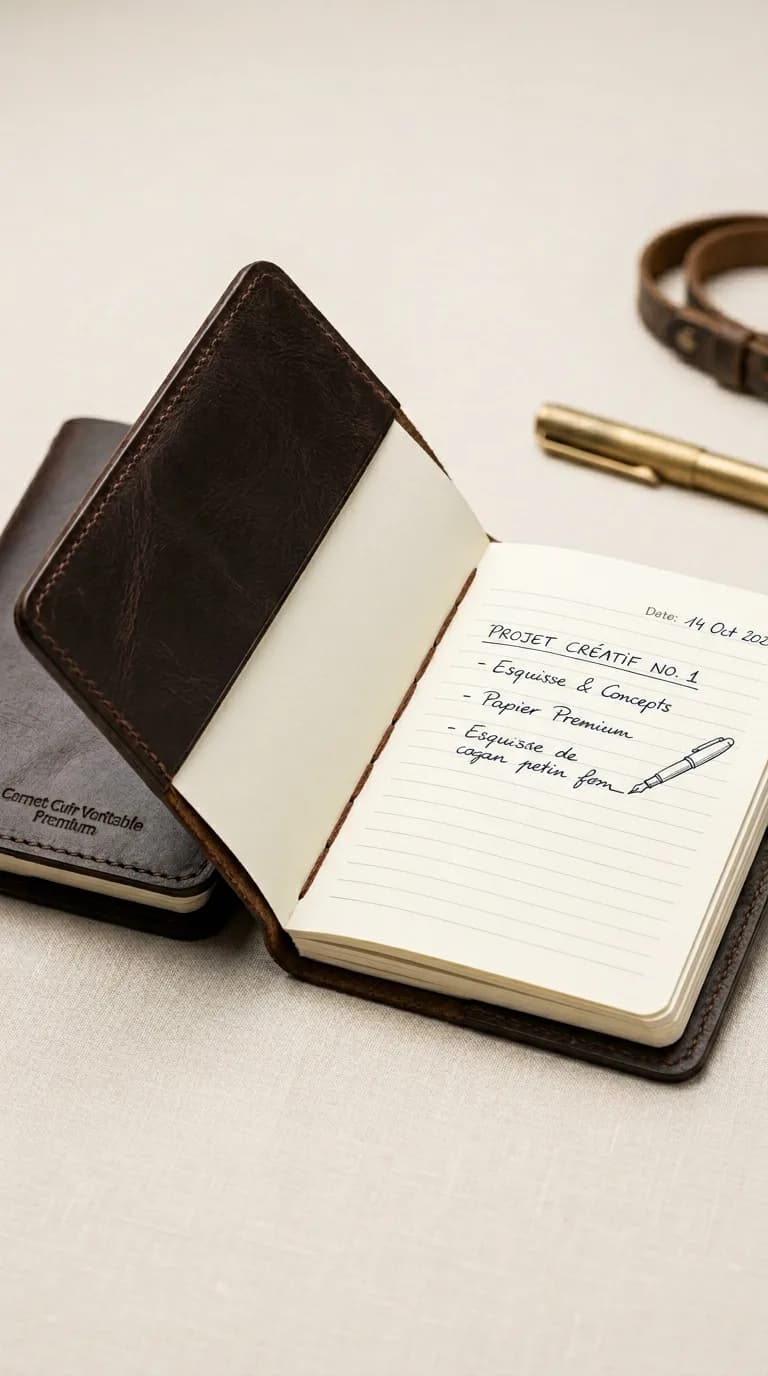 Date: 14 Oct 202
PROJET CRÉATIF NO. 1
- Esquisse & Concepts
- Papier Premium
- Esquisse de
cagan petin fom
Carnet Cuir Véritable
Premium